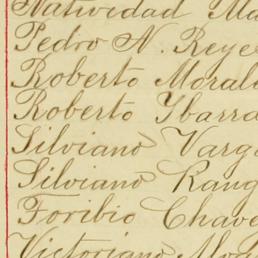 Natividad Ma
Pedro N. Reye
Roberto Moral
Roberto Ybarra
Silviano Varg
Silviano Rang
Foribio Chave
Victoriano